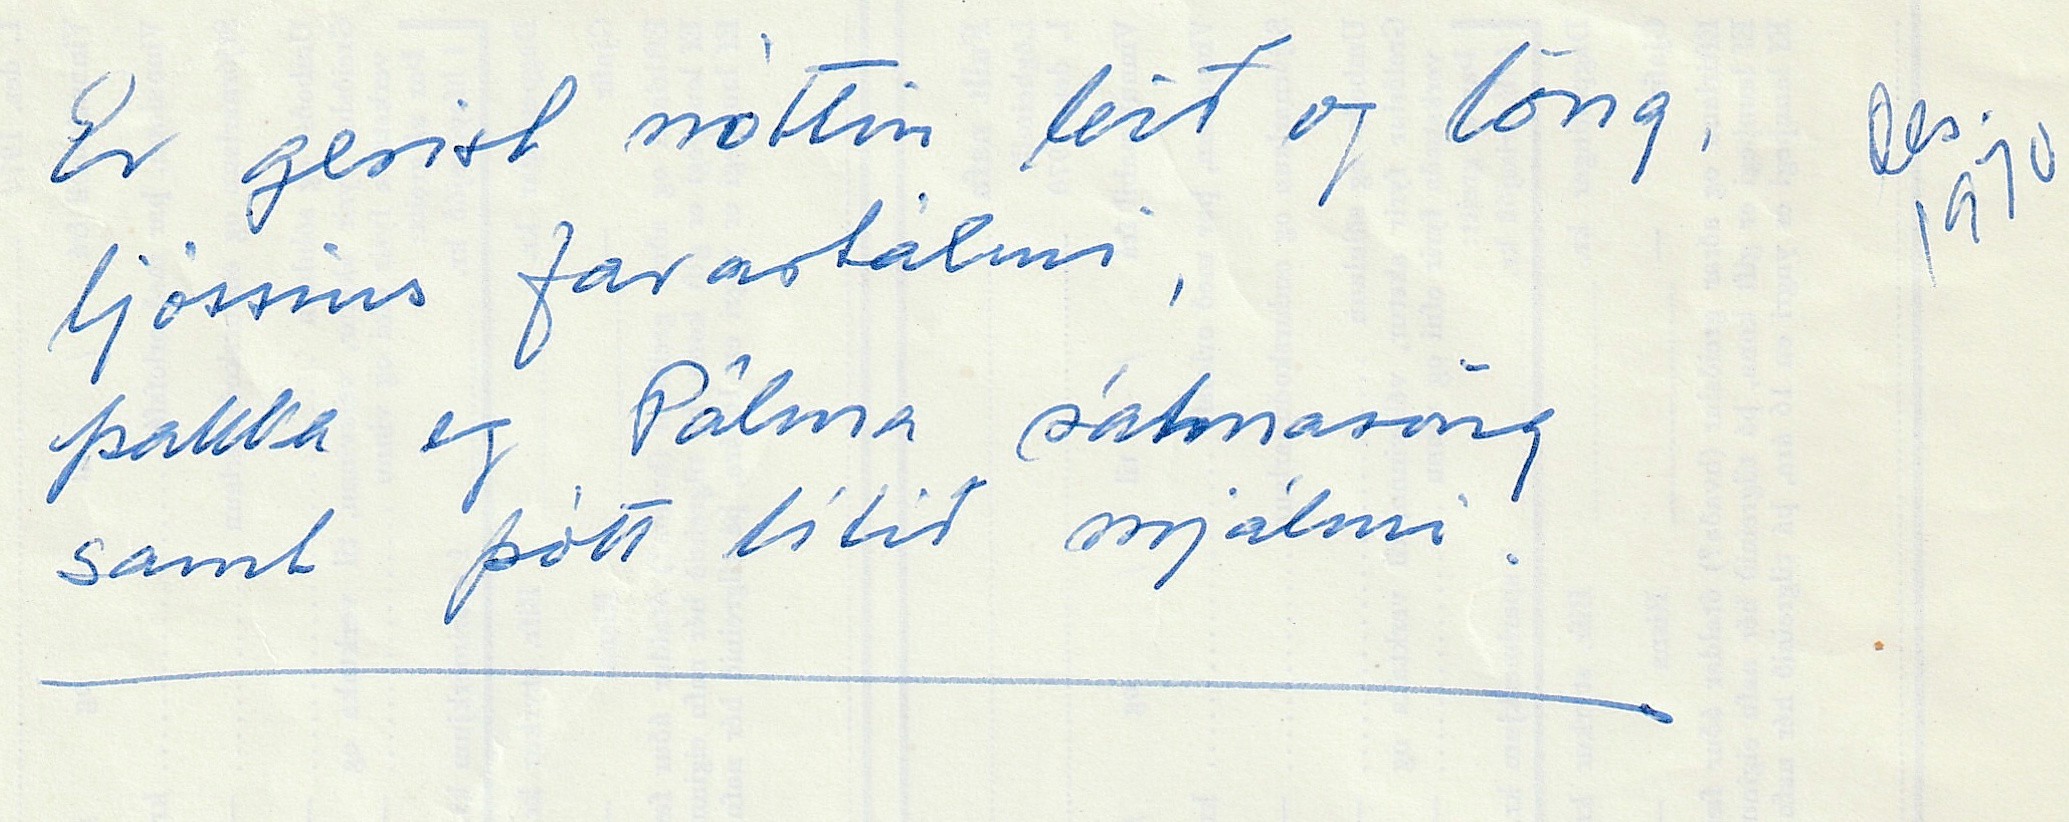 Er gerist nóttin leið og löng, Des. 1970
ljóssins farartálmi,
þakka eg Pálma sálmasöng
samt þótt lítið mjálmi.